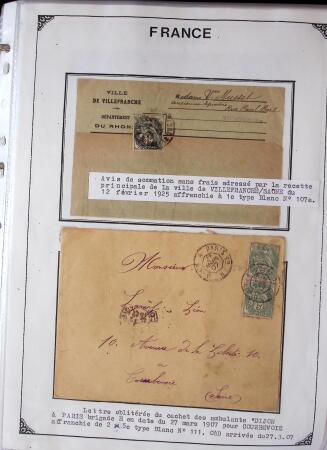 FRANCE
VILLE
DE VILLEFRANCHE
DÉPARTEMENT
DU RHÔNE
Madame Vve Musset
Rue Paul Bert
Avis de sommation sans frais adressé par la recette
principale de la ville de VILLEFRANCHE/SAONE du
12 février 1925 affranchie à 1c type Blanc N° 107a.
PARIS
Monsieur
Léon
10, Avenue de la
Courbevoie
(Seine)
Lettre oblitérée du cachet des ambulants "DIJON
à PARIS brigade H en date du 27 mars 1907 pour COURBEVOIE
affranchie de 2 x 5c type Blanc N° 111. CAD arrivée du 27.3.07